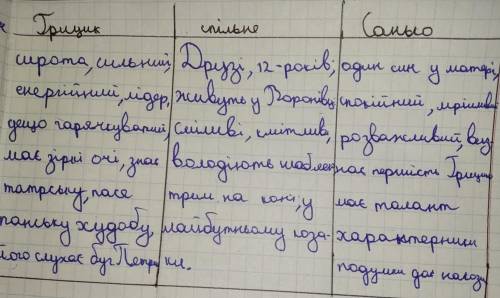 Грицик спільне Санько
сирота, сильний, Друзі, 12-років, один син у матері,
енергійний, лідер, живуть у Воронівці спокійний, мрійливий
дещо гарячкуватий, сміливі, кмітливі, розважливий, виз-
має зіркі очі, знає володіють шаблею, нає першість Грицика
татарську, пасе трем на коні, у має талант
панську худобу, майбутньому коза- характерники
його слухає буг Петрик ки. подумки дає накази